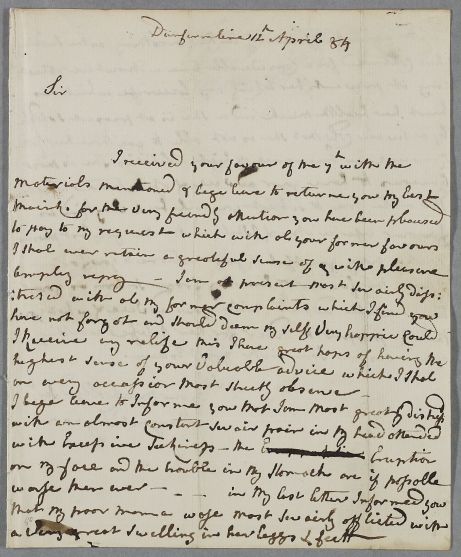 Dunfermline 12th April 84
Sir
I received your favour of the 7th with the
materials mentioned & bege leve to return you my best
thainks for the very friendly attention you have been pleased
to pay to my request which with al your former favours
I shal ever retain a greateful sense of & with pleasure
repay — I am at present most sevairly diss:
:tressed with al my former complaints which I find you
have not forgot and should deem my self very happie could
I Receive any relife this I have great hops of having the
highest sense of your valuable advice which I shal
on every occassion most strictly observe —
I bege leave to Inform you that I am most greatly distresst
with am almost constant sevair pain in my head attended
with Excessive Sickness — the Eruption
on my face and the trouble in my stomach are if possible
worse then ever — — — in my last letter Informed you
that my poor mama wase most sevairly afflicted with
a very great swelling in her Leggs & feett